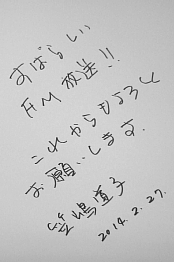 すばらしい
FM 放送!!
これからもよろしく
お願いします.
笠嶋道子
2014.2.27.